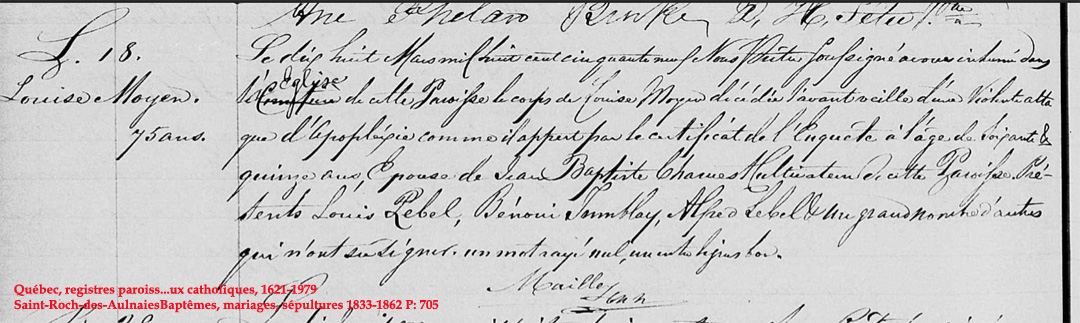 Une Phelan Burke D. H. Têtu Ptre
S. 18.
Louise Moyen.
75 ans.
Le dix huit Mars mil huit cent cinquante neuf Nous Prêtre soussigné avons inhumé dans
l'Eglise de cette Paroisse le corps de Louise Moyen décédée l'avant veille d'une violente atta
que d'Apoplexie comme il appert par le certificat de l'Enquête à l'âge de soixante &
quinze ans, Epouse de Jean Baptiste Cultivateur de cette Paroisse. Pré-
sents Louis Lebel, Bénoni Tremblay, Alfred Lebel & un grand nombre d'autres
qui n'ont su signer. un mot rayé nul, un entre lignes bon.
Québec, registres paroiss...ux catholiques, 1621-1979
Saint-Roch-dos-AulnaiesBaptêmes, mariages, sépultures 1833-1862 P: 705